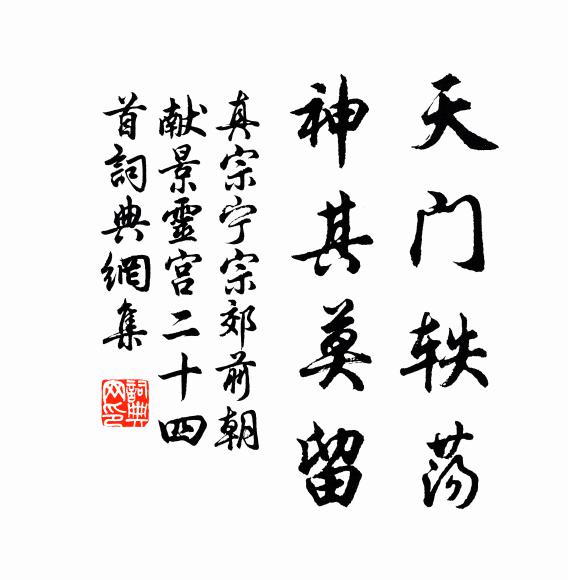 天门轶荡
神其莫留
真宗宁宗郊前朝
献景靈宫二十四
首詞典網集
詞典网印